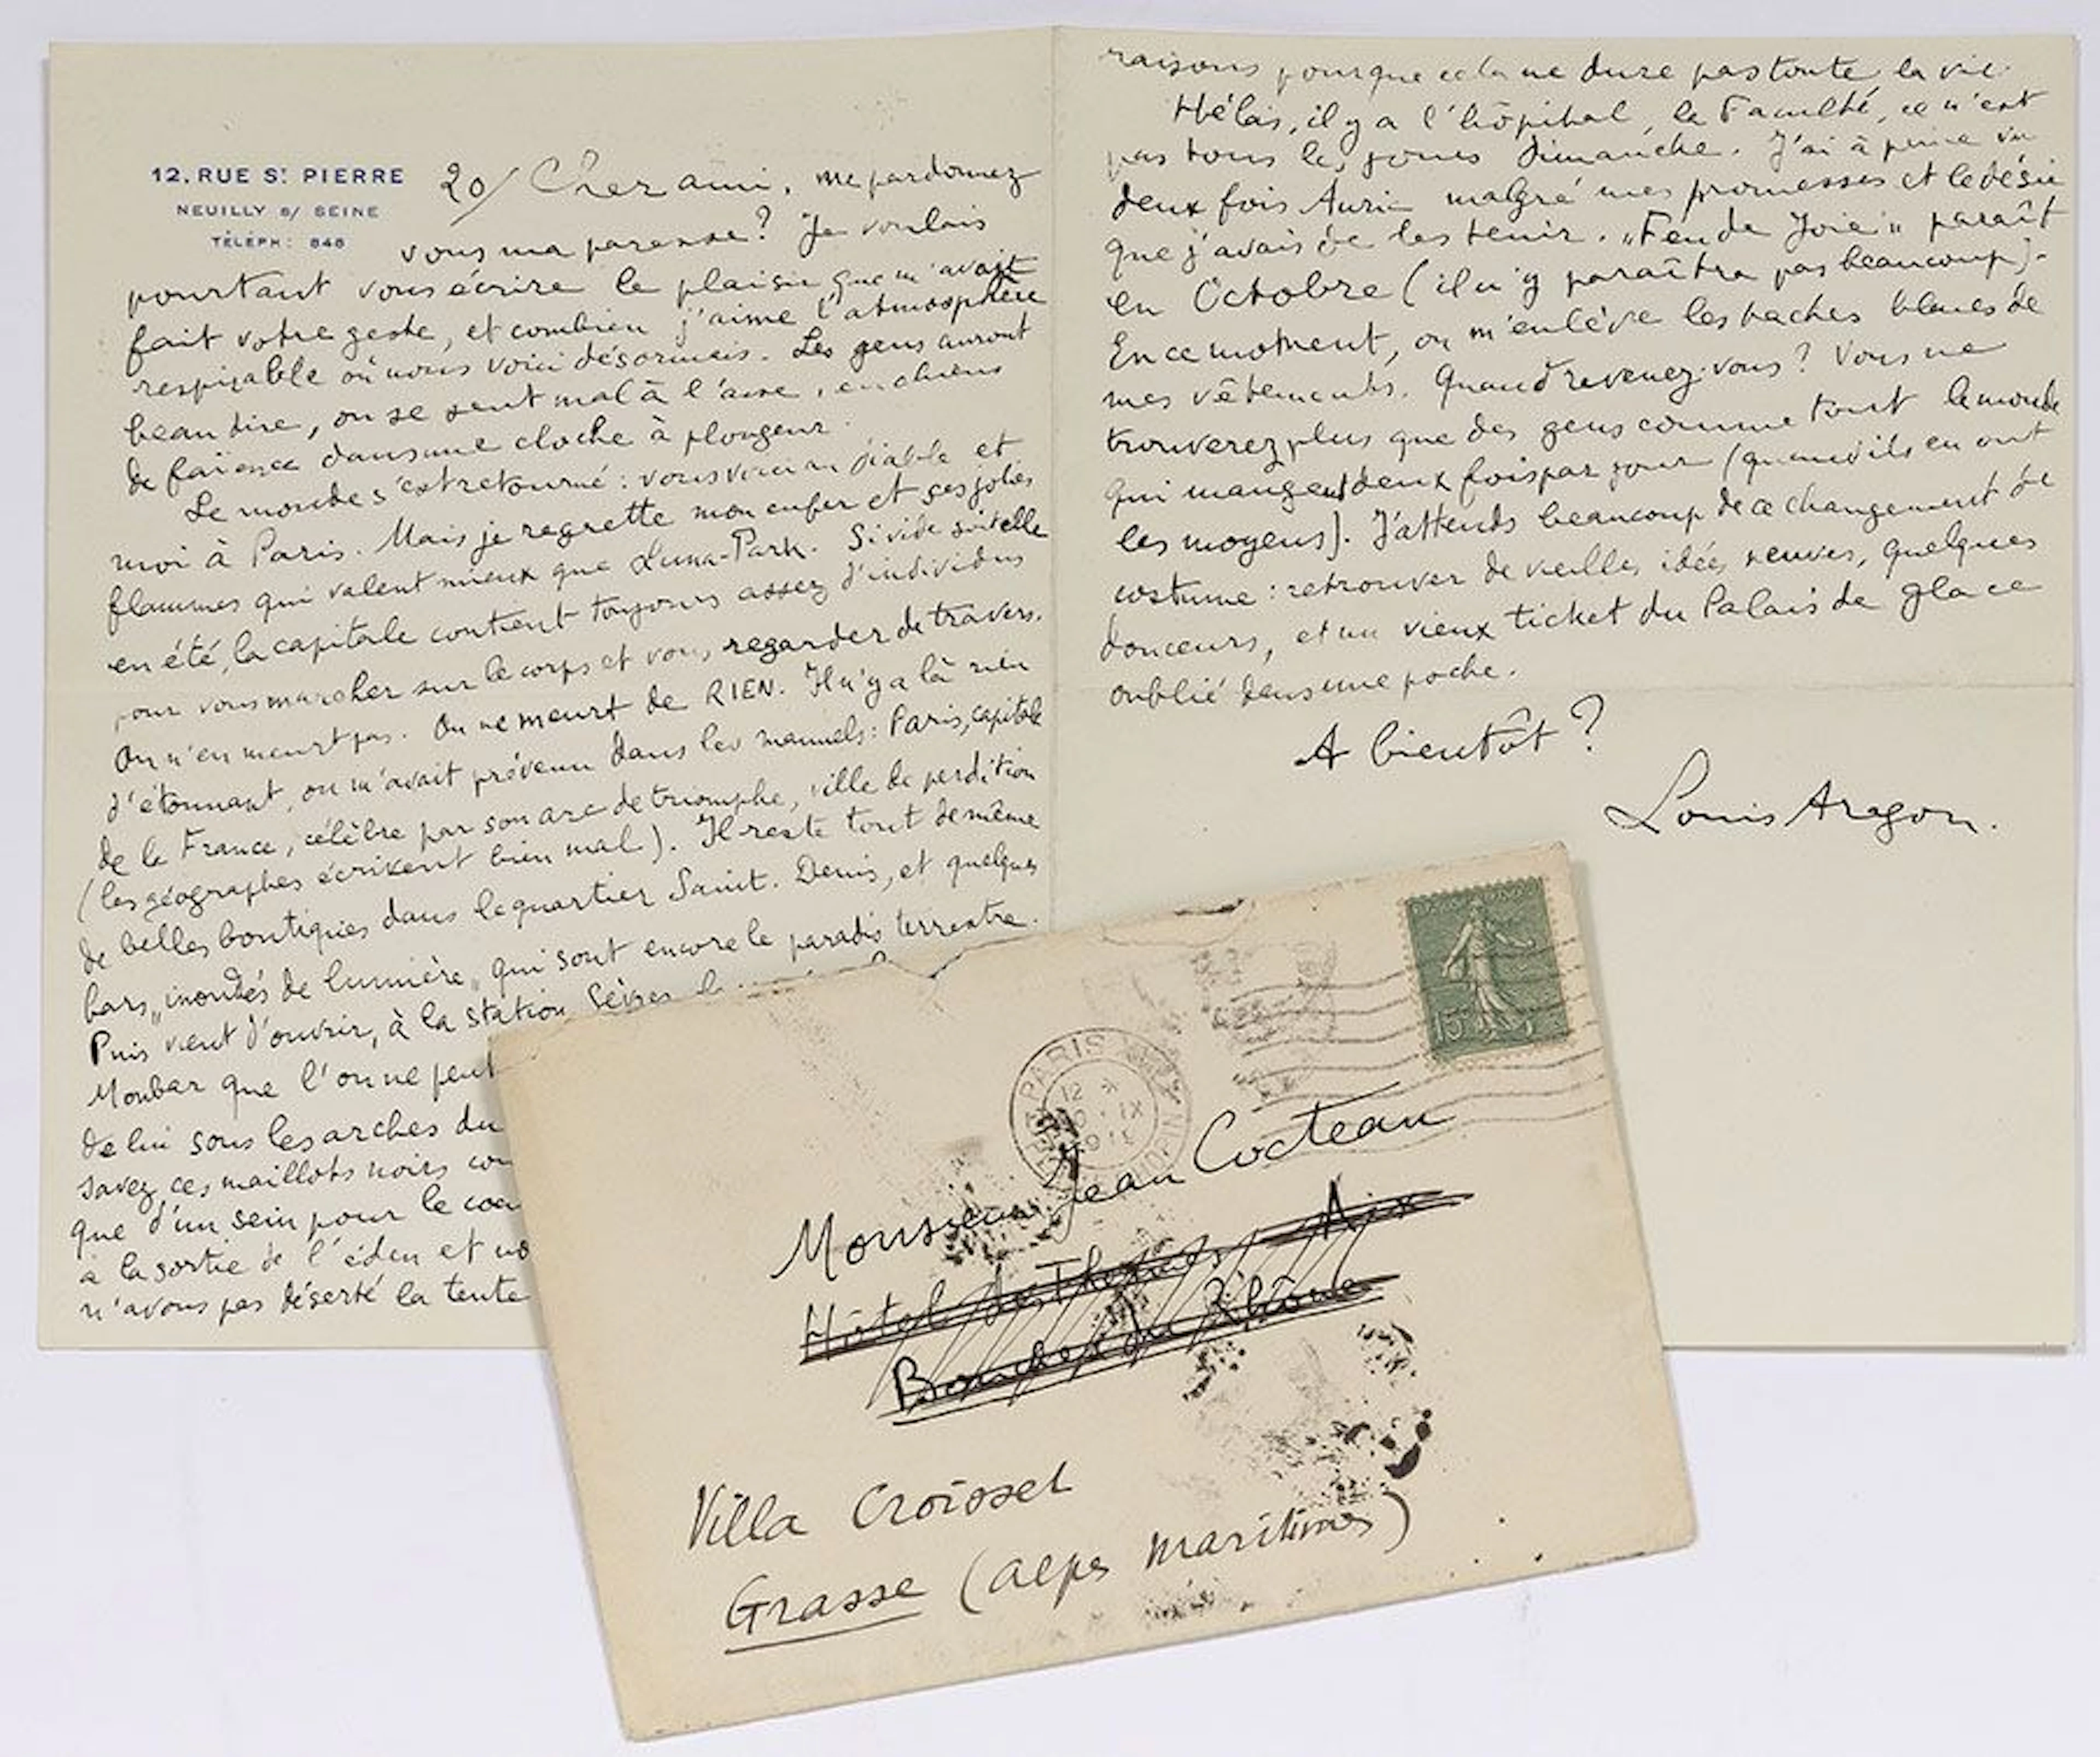 12, RUE St PIERRE
NEUILLY s/ SEINE
TÉLÉPH: 848
20/ Cher ami, me pardonnez
vous ma paresse? Je voulais
pourtant vous écrire le plaisir que m'avait
fait votre geste, et combien j'aime l'atmosphère
respirable où nous voici désormais. Les gens auront
beau dire, on se sent mal à l'aise, en chiens
de faïence dans une cloche à plongeur.
Le monde s'est retourné: vous voici au diable et
moi à Paris. Mais je regrette mon enfer et ses jolies
flammes qui valent mieux que Luna-Park. Si vide soit elle
en été, la capitale contient toujours assez d'individus
pour vous marcher sur le corps et vous regarder de travers.
On n'en meurt pas. On ne meurt de RIEN. Il n'y a là rien
d'étonnant, on m'avait prévenu dans les manuels: Paris, capitale
de la France, célèbre par son arc de triomphe, ville de perdition
(les géographes écrivent bien mal). Il reste tout de même
de belles boutiques dans le quartier Saint-Denis, et quelques
bars "inondés de lumière" qui sont encore le paradis terrestre.
Puis vient d'ouvrir, à la station Sèvres
Monbar que l'on ne peut
de lui sous les arches du
savez, ces maillots noirs
que d'un sein pour le
à la sortie de l'éden et
n'avons pas déserté la tente
raisons pour que cela ne dure pas toute la vie.
Hélas, il y a l'hôpital, la Faculté, ce n'est
pas tous les jours dimanche. J'ai à peine vu
deux fois Auric malgré mes promesses et le désir
que j'avais de les tenir. "Feu de Joie" paraît
en Octobre (il n'y paraîtra pas beaucoup).
En ce moment, on m'enlève les taches bleues de
mes vêtements. Quand revenez-vous? Vous ne
trouverez plus que des gens comme tout le monde
qui mangent deux fois par jour (quand ils en ont
les moyens). J'attends beaucoup de ce changement de
costume: retrouver de vieilles idées neuves, quelques
douceurs, et un vieux ticket du Palais de glace
oublié dans une poche.
A bientôt?
Louis Aragon.
PARIS
12
IX
15
Monsieur Jean Cocteau
Hôtel des Thermes Aix
Bouches du Rhône
Villa Croisset
Grasse (Alpes maritimes)